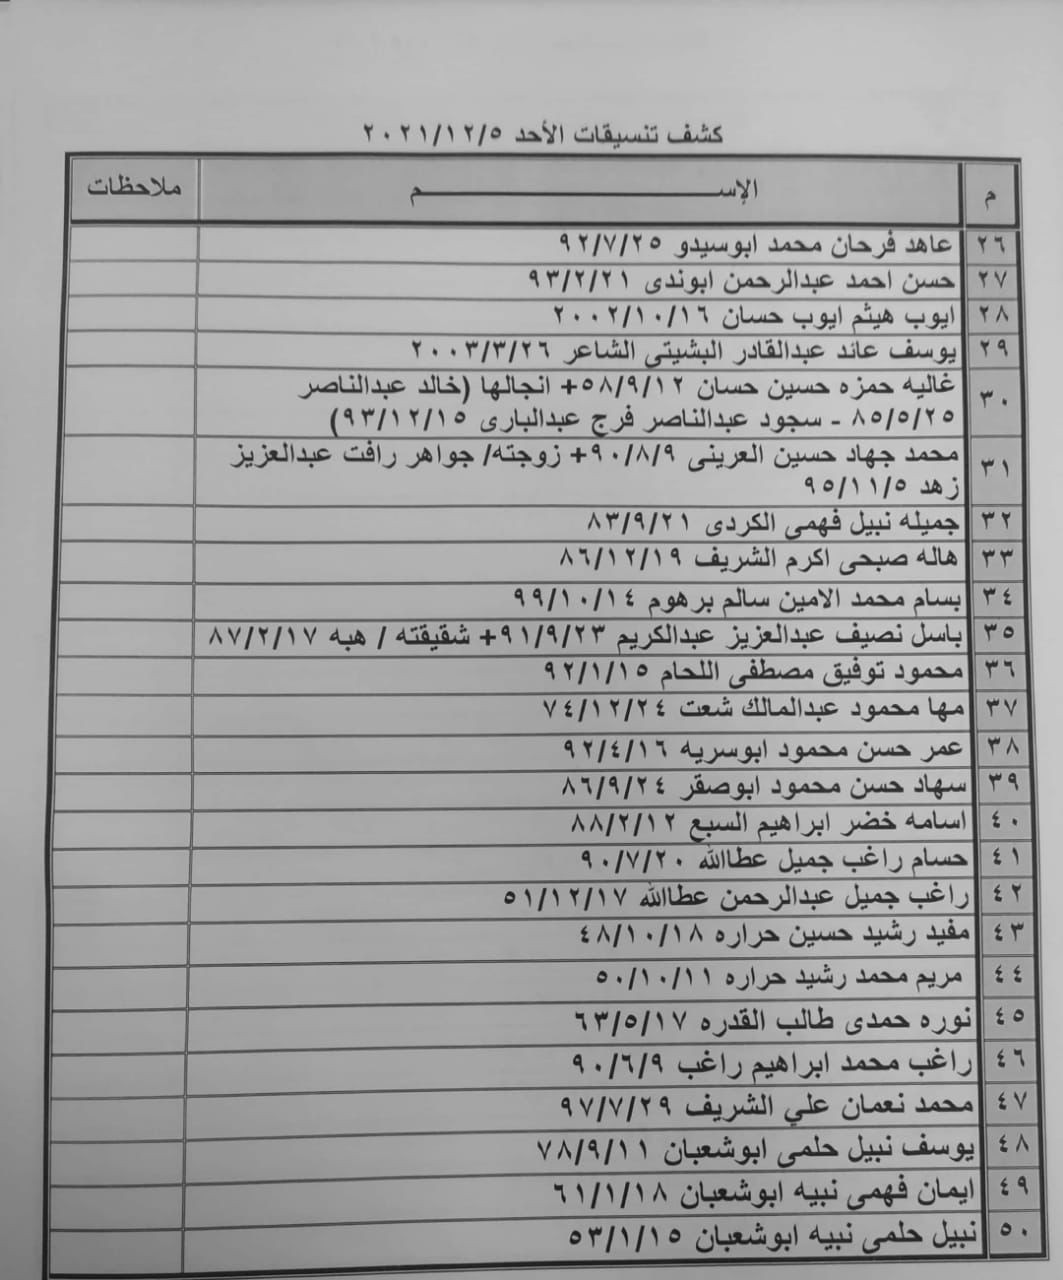 كشف تنسيقات الأحد ٢٠٢١/١٢/٥
م الإســـــــــــم ملاحظات
٢٦ عاهد فرحان محمد ابوسيدو ٩٢/٧/٢٥
٢٧ حسن احمد عبدالرحمن ابوندى ٩٣/٢/٢١
٢٨ ايوب هيثم ايوب حسان ٢٠٠٢/١٠/١٦
٢٩ يوسف عائد عبدالقادر البشيتى الشاعر ٢٠٠٣/٣/٢٦
٣٠ غاليه حمزه حسين حسان ٥٨/٩/١٢+ انجالها (خالد عبدالناصر
٨٥/٥/٢٥ - سجود عبدالناصر فرج عبدالبارى ٩٣/١٢/١٥)
٣١ محمد جهاد حسين العرينى ٩٠/٨/٩+ زوجته/ جواهر رافت عبدالعزيز
زهد ٩٥/١١/٥
٣٢ جميله نبيل فهمى الكردى ٨٣/٩/٢١
٣٣ هاله صبحى اكرم الشريف ٨٦/١٢/١٩
٣٤ بسام محمد الامين سالم برهوم ٩٩/١٠/١٤
٣٥ باسل نصيف عبدالعزيز عبدالكريم ٩١/٩/٢٣+ شقيقته / هبه ٨٧/٢/١٧
٣٦ محمود توفيق مصطفى اللحام ٩٢/١/١٥
٣٧ مها محمود عبدالمالك شعت ٧٤/١٢/٢٤
٣٨ عمر حسن محمود ابوسريه ٩٢/٤/١٦
٣٩ سهاد حسن محمود ابوصقر ٨٦/٩/٢٤
٤٠ اسامه خضر ابراهيم السبع ٨٨/٢/١٢
٤١ حسام راغب جميل عطاالله ٩٠/٧/٢٠
٤٢ راغب جميل عبدالرحمن عطاالله ٥١/١٢/١٧
٤٣ مفيد رشيد حسين حراره ٤٨/١٠/١٨
٤٤ مريم محمد رشيد حراره ٥٠/١٠/١١
٤٥ نوره حمدى طالب القدره ٦٣/٥/١٧
٤٦ راغب محمد ابراهيم راغب ٩٠/٦/٩
٤٧ محمد نعمان علي الشريف ٩٧/٧/٢٩
٤٨ يوسف نبيل حلمى ابوشعبان ٧٨/٩/١١
٤٩ ايمان فهمى نبيه ابوشعبان ٦١/١/١٨
٥٠ نبيل حلمى نبيه ابوشعبان ٥٣/١/١٥